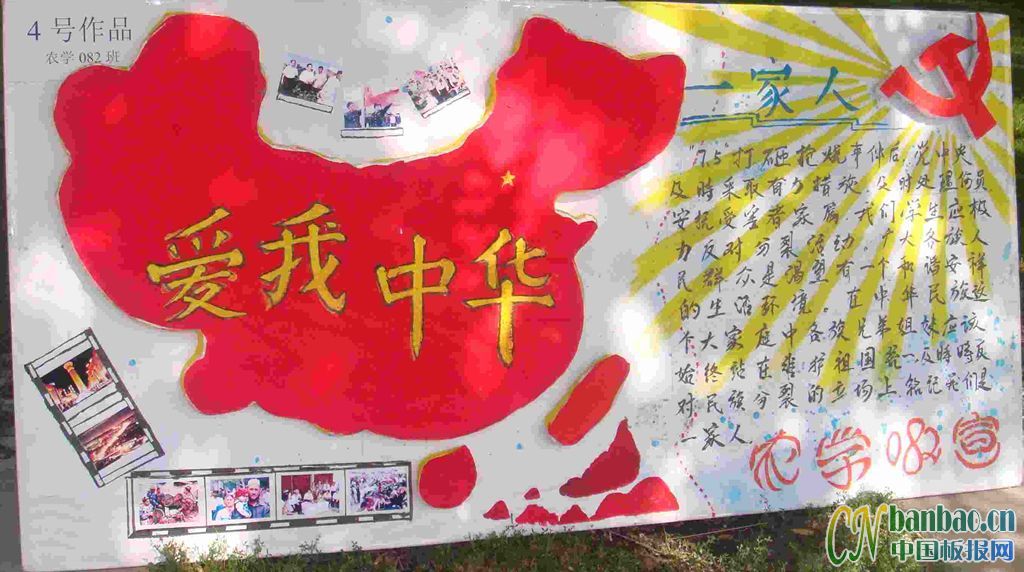 4 号作品
农学 082 班
爱我中华
一家人
"7.5"打砸抢烧事件后,党中央
及时采取有力措施,及时处理伤员
安抚受害者家属,我们学生应极
力反对分裂活动,广大各族人
民群众是渴望有一个和谐安祥
的生活环境。在中华民族这
个大家庭中各族兄弟姐妹应该
始终站在维护祖国统一反对
对民族分裂的立场上铭记我们是
一家人
农学082宣
CNbanbao.cn
中国板报网